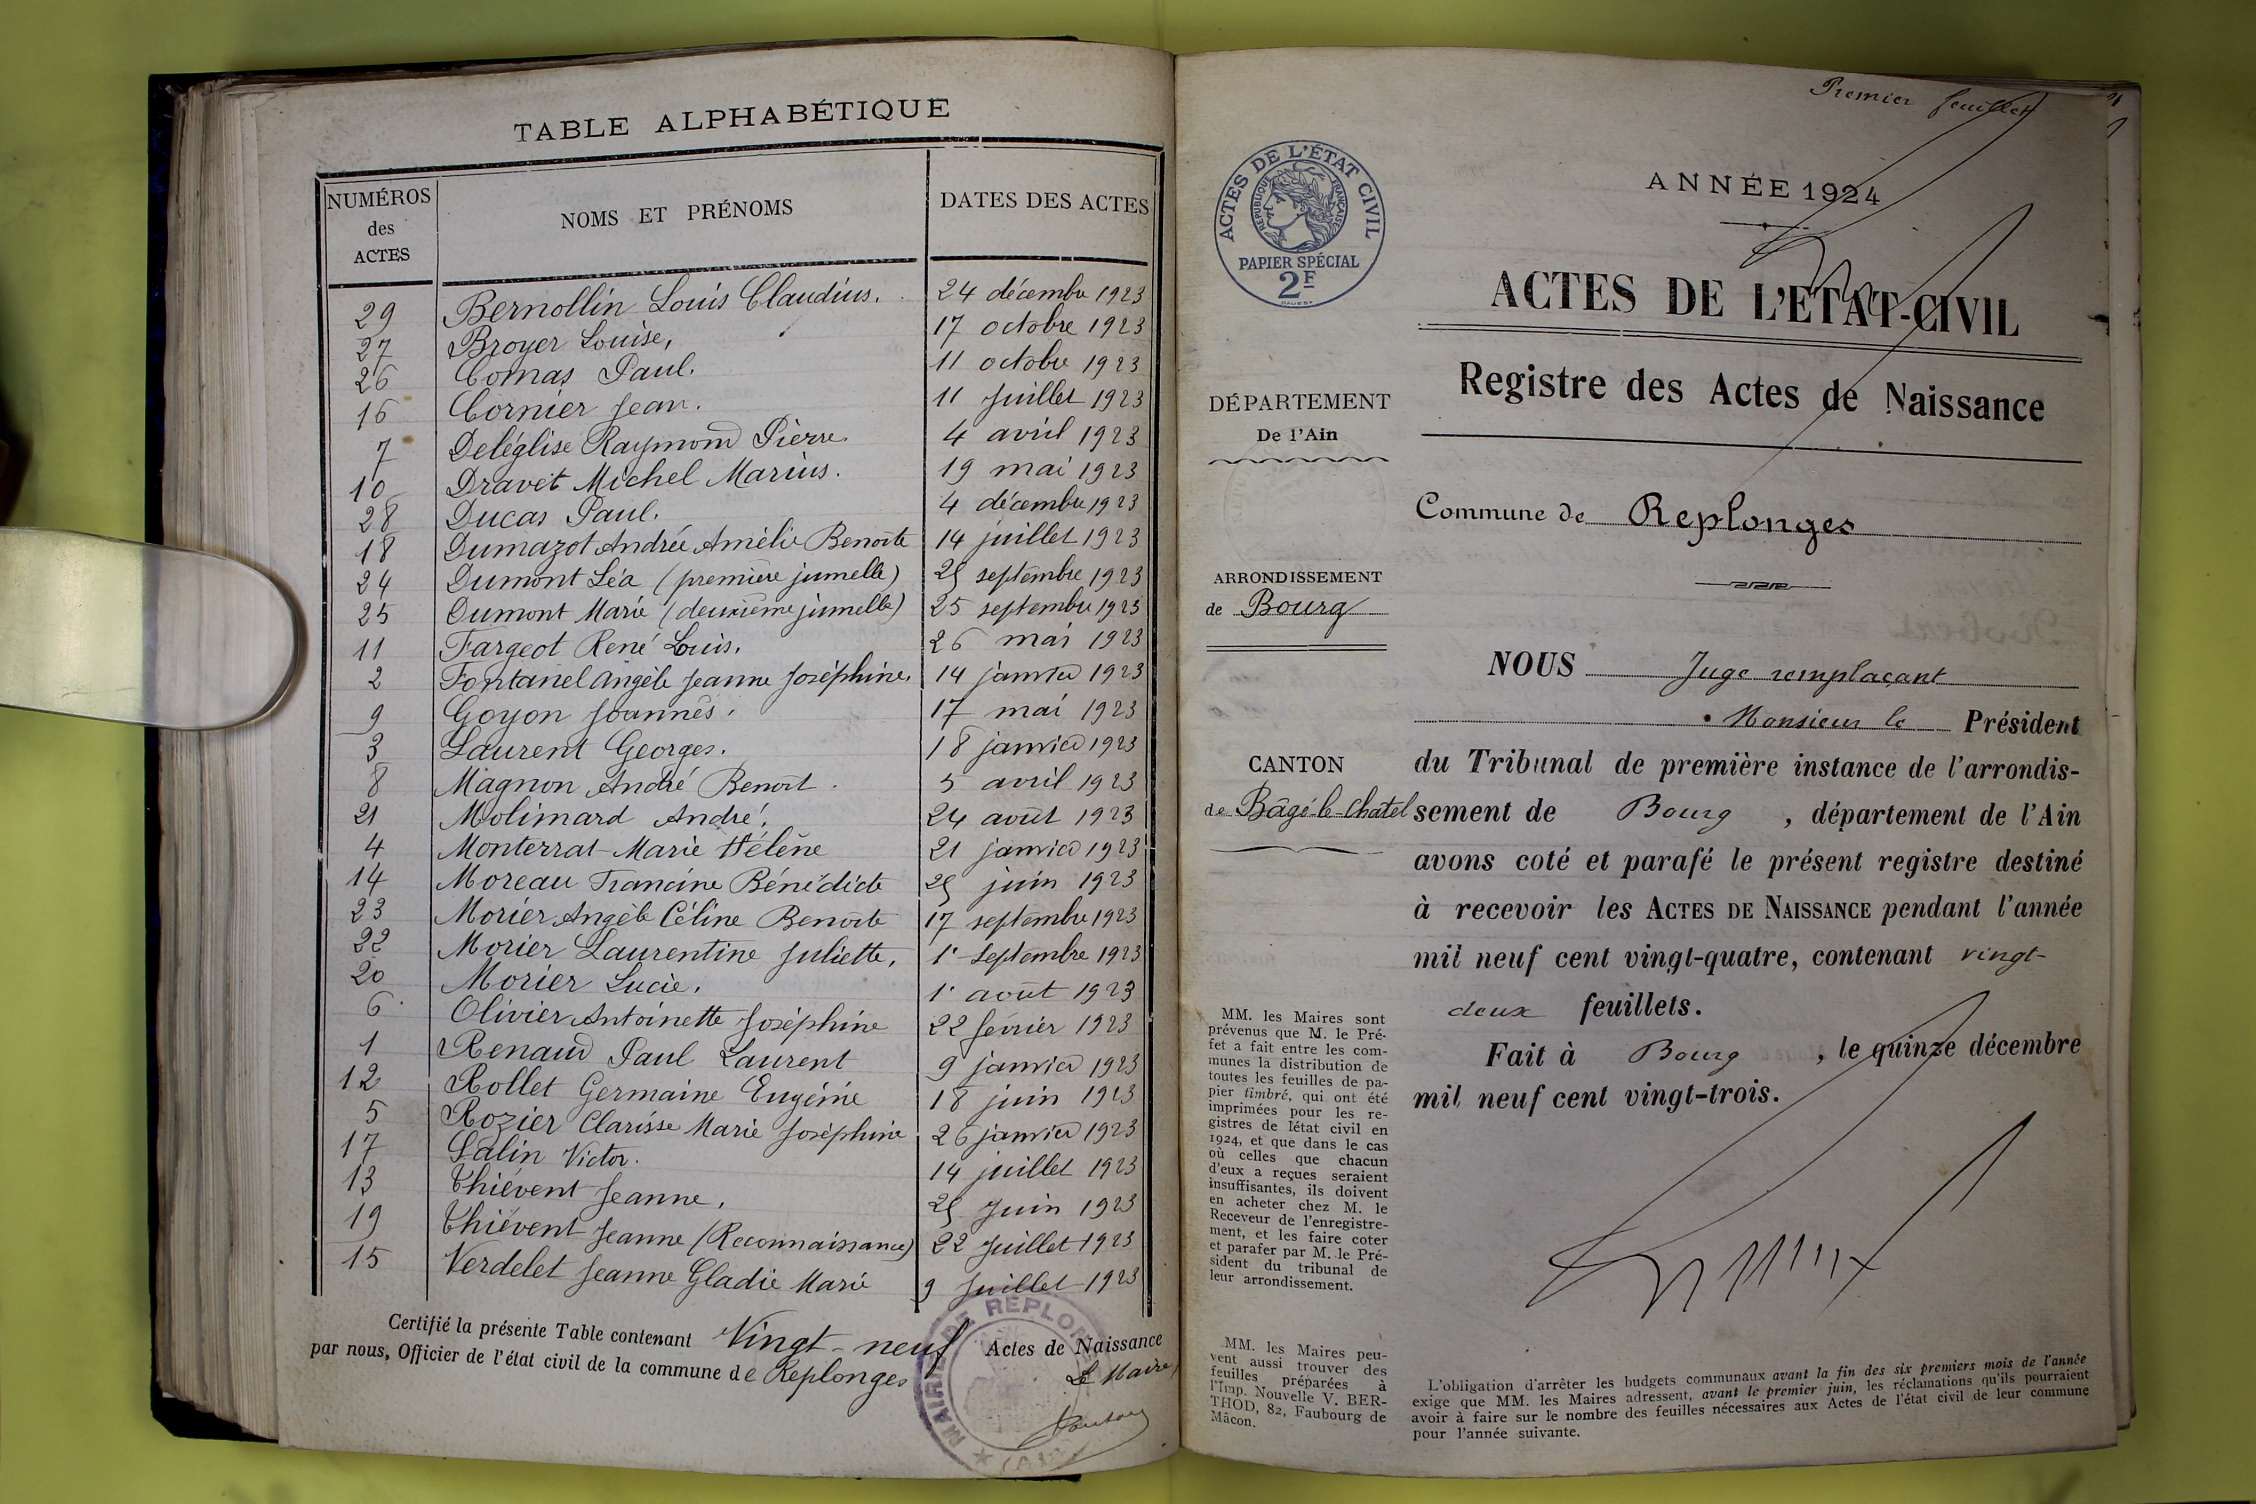 TABLE ALPHABÉTIQUE
NUMÉROS des ACTES NOMS ET PRÉNOMS DATES DES ACTES
29 Bernollin Louis Claudius. 24 décembre 1923
27 Broyer Louise, 17 octobre 1923
26 Comas Paul. 11 octobre 1923
16 Cornier Jean. 11 Juillet 1923
7 Deléglise Raymond Pierre 4 avril 1923
10 Dravet Michel Marius. 19 mai 1923
28 Ducas Paul. 4 décembre 1923
18 Dumazot Andrée Amélie Benoîte 14 juillet 1923
24 Dumont Léa (première jumelle) 25 septembre 1923
25 Dumont Marie (deuxième jumelle) 25 septembre 1923
11 Fargeot René Louis. 26 mai 1923
2 Fontanel Angèle Jeanne Joséphine. 14 janvier 1923
9 Goyon Joannès. 17 mai 1923
3 Laurent Georges. 18 janvier 1923
8 Magnon André Benoît. 5 avril 1923
21 Molimard André. 24 août 1923
4 Monterrat Marie Hélène 21 janvier 1923
14 Moreau Francine Bénédicte 25 juin 1923
23 Morier Angèle Céline Benoîte 17 septembre 1923
22 Morier Laurentine Juliette. 1r Septembre 1923
20 Morier Lucie. 1r août 1923
6 Olivier Antoinette Joséphine 22 février 1923
1 Renaud Paul Laurent 9 janvier 1923
12 Rollet Germaine Eugénie 18 juin 1923
5 Rozier Clarisse Marie Joséphine 26 janvier 1923
17 Salin Victor. 14 juillet 1923
13 Thiévent Jeanne. 25 Juin 1923
19 Thiévent Jeanne (Reconnaissance) 22 Juillet 1923
15 Verdelet Jeanne Gladie Marie 9 Juillet 1923
Certifié la présente Table contenant Vingt-neuf Actes de Naissance
par nous, Officier de l'état civil de la commune de Replonges
Le Maire,
MAIRIE DE REPLONGES
(AIN)
Premier feuillet
ACTES DE L'ÉTAT CIVIL
RÉPUBLIQUE FRANÇAISE
PAPIER SPÉCIAL
2F
ANNÉE 1924
ACTES DE L'ÉTAT-CIVIL
Registre des Actes de Naissance
DÉPARTEMENT
De l'Ain
Commune de Replonges
ARRONDISSEMENT
de Bourg
CANTON
de Bâgé-le-Chatel
NOUS Juge remplaçant
Monsieur le Président
du Tribunal de première instance de l'arrondis-
sement de Bourg, département de l'Ain
avons coté et parafé le présent registre destiné
à recevoir les ACTES DE NAISSANCE pendant l'année
mil neuf cent vingt-quatre, contenant vingt-
deux feuillets.
Fait à Bourg, le quinze décembre
mil neuf cent vingt-trois.
MM. les Maires sont
prévenus que M. le Pré-
fet a fait entre les com-
munes la distribution de
toutes les feuilles de pa-
pier timbré, qui ont été
imprimées pour les re-
gistres de létat civil en
1924, et que dans le cas
où celles que chacun
d'eux a reçues seraient
insuffisantes, ils doivent
en acheter chez M. le
Receveur de l'enregistre-
ment, et les faire coter
et parafer par M. le Pré-
sident du tribunal de
leur arrondissement.
MM. les Maires peu-
vent aussi trouver des
feuilles préparées à
l'Imp. Nouvelle V. BER-
THOD, 82, Faubourg de
Mâcon.
L'obligation d'arrêter les budgets communaux avant la fin des six premiers mois de l'année
exige que MM. les Maires adressent, avant le premier juin, les réclamations qu'ils pourraient
avoir à faire sur le nombre des feuilles nécessaires aux Actes de l'état civil de leur commune
pour l'année suivante.